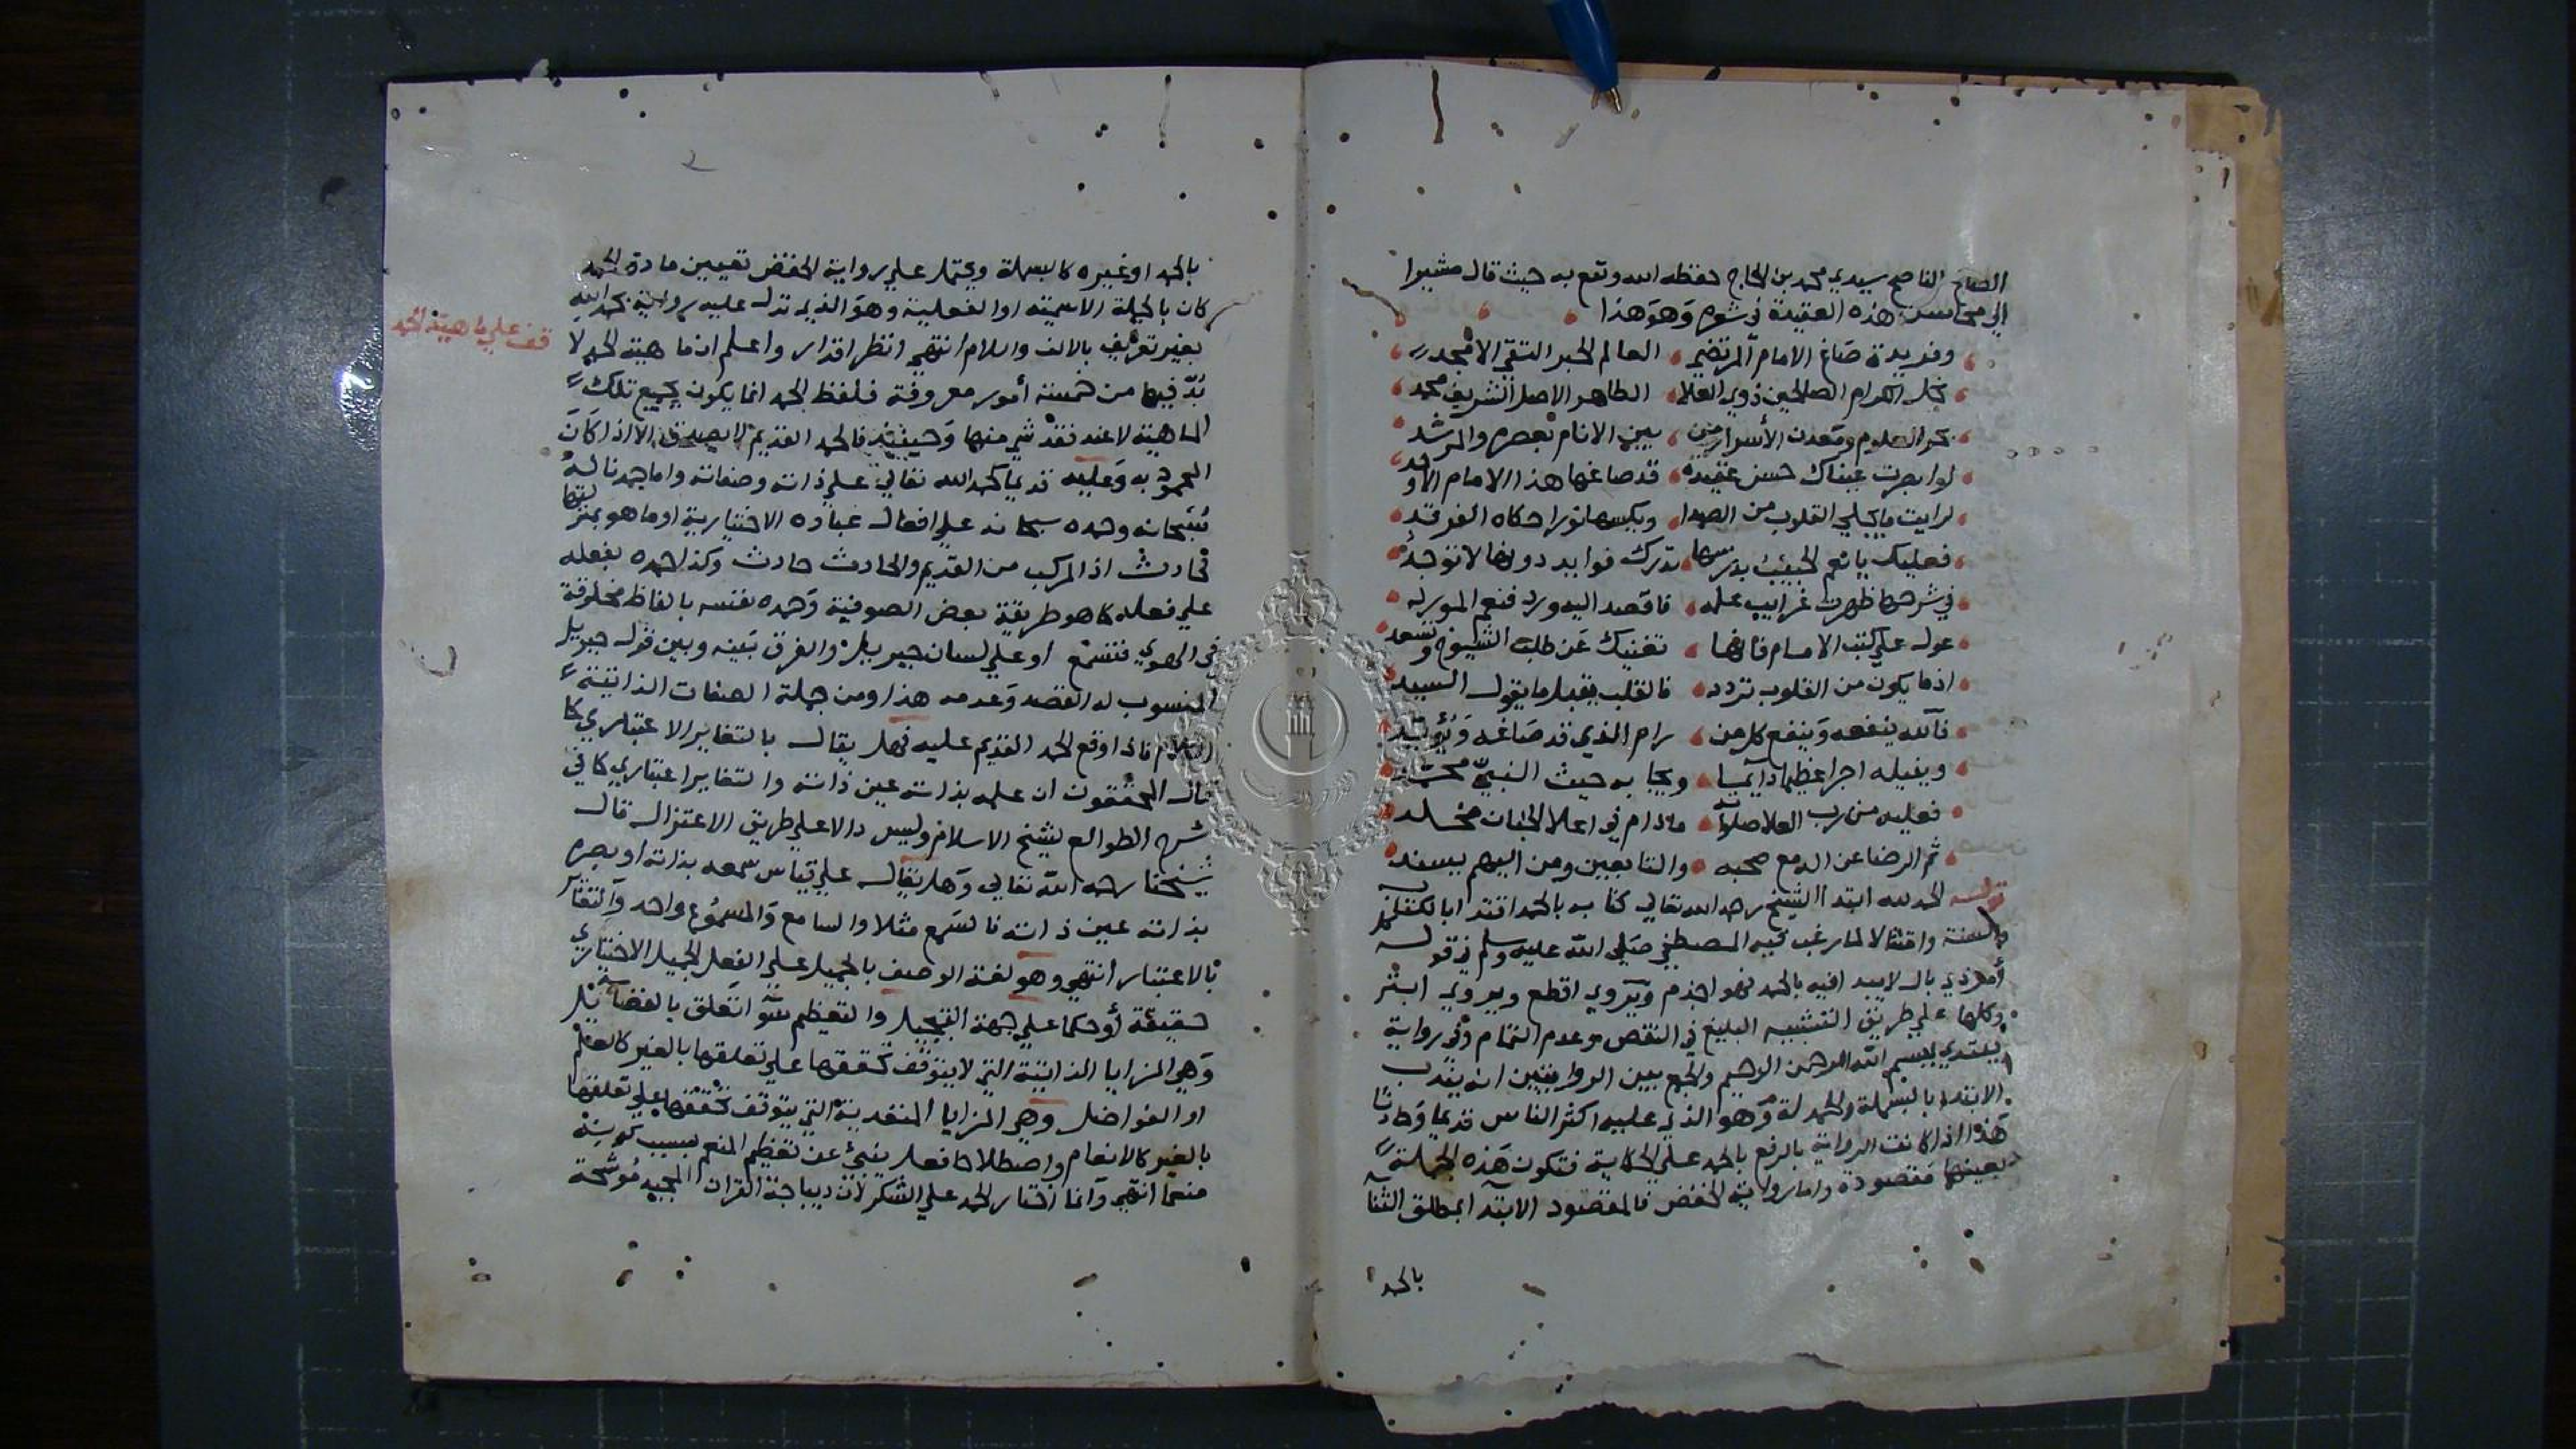 الصالح الناصح سيدي محمد بن الحاج حفظه الله ونفع به حيث قال مشيرا
الي محاسن هذه العقيدة في شعره وهو هذا
وفريدة صاغ الامام المرتضي العالم الحبر التقي الامجد
نجل الكرام الصالحين ذوي العلا الطاهر الاصل الشريف محمد
بحر العلوم ومعدن الأسرار من بين الانام بعصره والمرشد
لو ابصرت عيناك حسن عقيدة قد صاغها هذا الامام الاوحد
لرايت ما يجلي القلوب من الصدا ويكسها نورا حكاه الفرقد
فعليك يا نعم الحبيب بدرسها تدرك فوايد دونها لا توجد
في شرحها ظهرت غرايب علمه فاقصد اليه ورد فنعم المورد
عول علي كتب الامام فانها تغنيك عن طلب الشيوخ وتسعد
اذ ما يكون من القلوب تردد فالقلب يقبل ما يقول السيد
فالله ينفعه وينفع كل من رام الذي قد صاغه ويؤيد
وينيله اجرا عظيما دايما ويجابه حيث النبي محمد
فعليه من رب العلا صلواته مادام في اعلا الجنان مخلد
ثم الرضا عن اله مع صحبه والتابعين ومن اليهم يسند
قوله الحمد لله ابتدا الشيخ رحمه الله تعالي كتابه بالحمد اقتدا بالكتاب
والسنة وامتثالا لما رغب فيه المصطفي صلي الله عليه وسلم في قوله كل
أمر ذي بال لا يبدا فيه بالحمد فهو اجذم ويروي اقطع ويروي ابتر
وكلها علي طريق التشبيه البليغ في النقص وعدم التمام وفي رواية
يبتدي ببسم الله الرحمن الرحيم والجمع بين الروايتين انه يندب
الابتداء بالبسملة والحمدلة وهو الذي عليه اكثر الناس قديما وحادثا
هذا اذا كانت الرواية بالرفع بالحمد علي الحكاية فتكون هذه الجملة
بعينها مقصودة واما رواية الخفض فالمقصود الابتدا بمطلق الثنا
بالحمد
بالحمد او غيره كالبسملة ويحتمل علي رواية الخفض تعيين مادة الحمد
كان بالجملة الاسمية او الفعلية وهو الذي تدل عليه رواية بحمد الله
بغير تعريف بالالف واللام انتهي انظر اقدار واعلم ان ماهية الحمد لا
قف علي ماهية الحمد
بد فيها من خمسة أمور معروفة فلفظ الحمد انما يكون بجميع تلك
الماهية لا عند فقد شي منها وحينئذ فالحمد القديم لا يصدق الا اذا كان
المحمود به وعليه قديما كحمد الله تعالي علي ذاته وصفاته واما حمدنا له
سبحانه وحمده سبحانه علي افعال عباده الاختيارية او ما هو بمنزلتها
فحادث اذ المركب من القديم والحادث حادث وكذا حمده بفعله
علي فعله كما هو طريقة بعض الصوفية وحمده نفسه بالفاظ مخلوقة
في الهوي فتسمع او علي لسان جبريل والفرق بينه وبين قول جبريل
المنسوب له القصد وعدمه هذا ومن جملة الصفات الذاتية
الكلام فاذا وقع الحمد القديم عليه فهل يقال بالتغاير الاعتباري كما
قال المحققون ان علمه بذاته عين ذاته والتغاير اعتباري كما في
شرح الطوالع لشيخ الاسلام وليس دالا علي طريق الاعتزال قال
شيخنا رحمه الله تعالي وهل يقال علي قياس سمعه بذاته او بصره
بذاته عين ذاته فالسمع مثلا والسامع والمسموع واحد والتغاير
بالاعتبار انتهي وهو لغة الوصف بالجميل علي الفعل الجميل الاختياري
حقيقة أو حكما علي جهة التبجيل والتعظيم سواء اتعلق بالفضايل
وهي المزايا الذاتية التي لا يتوقف تحققها علي تعلقها بالغير كالعلم
او الفواضل وهي المزايا المتعدية التي يتوقف تحققها علي تعلقها
بالغير كالانعام واصطلاحا فعل ينبئ عن تعظيم المنعم بسبب كونه
منعما انتهي وانما اختار الحمد علي الشكر لأن ديباجة القران المجيد موشحة